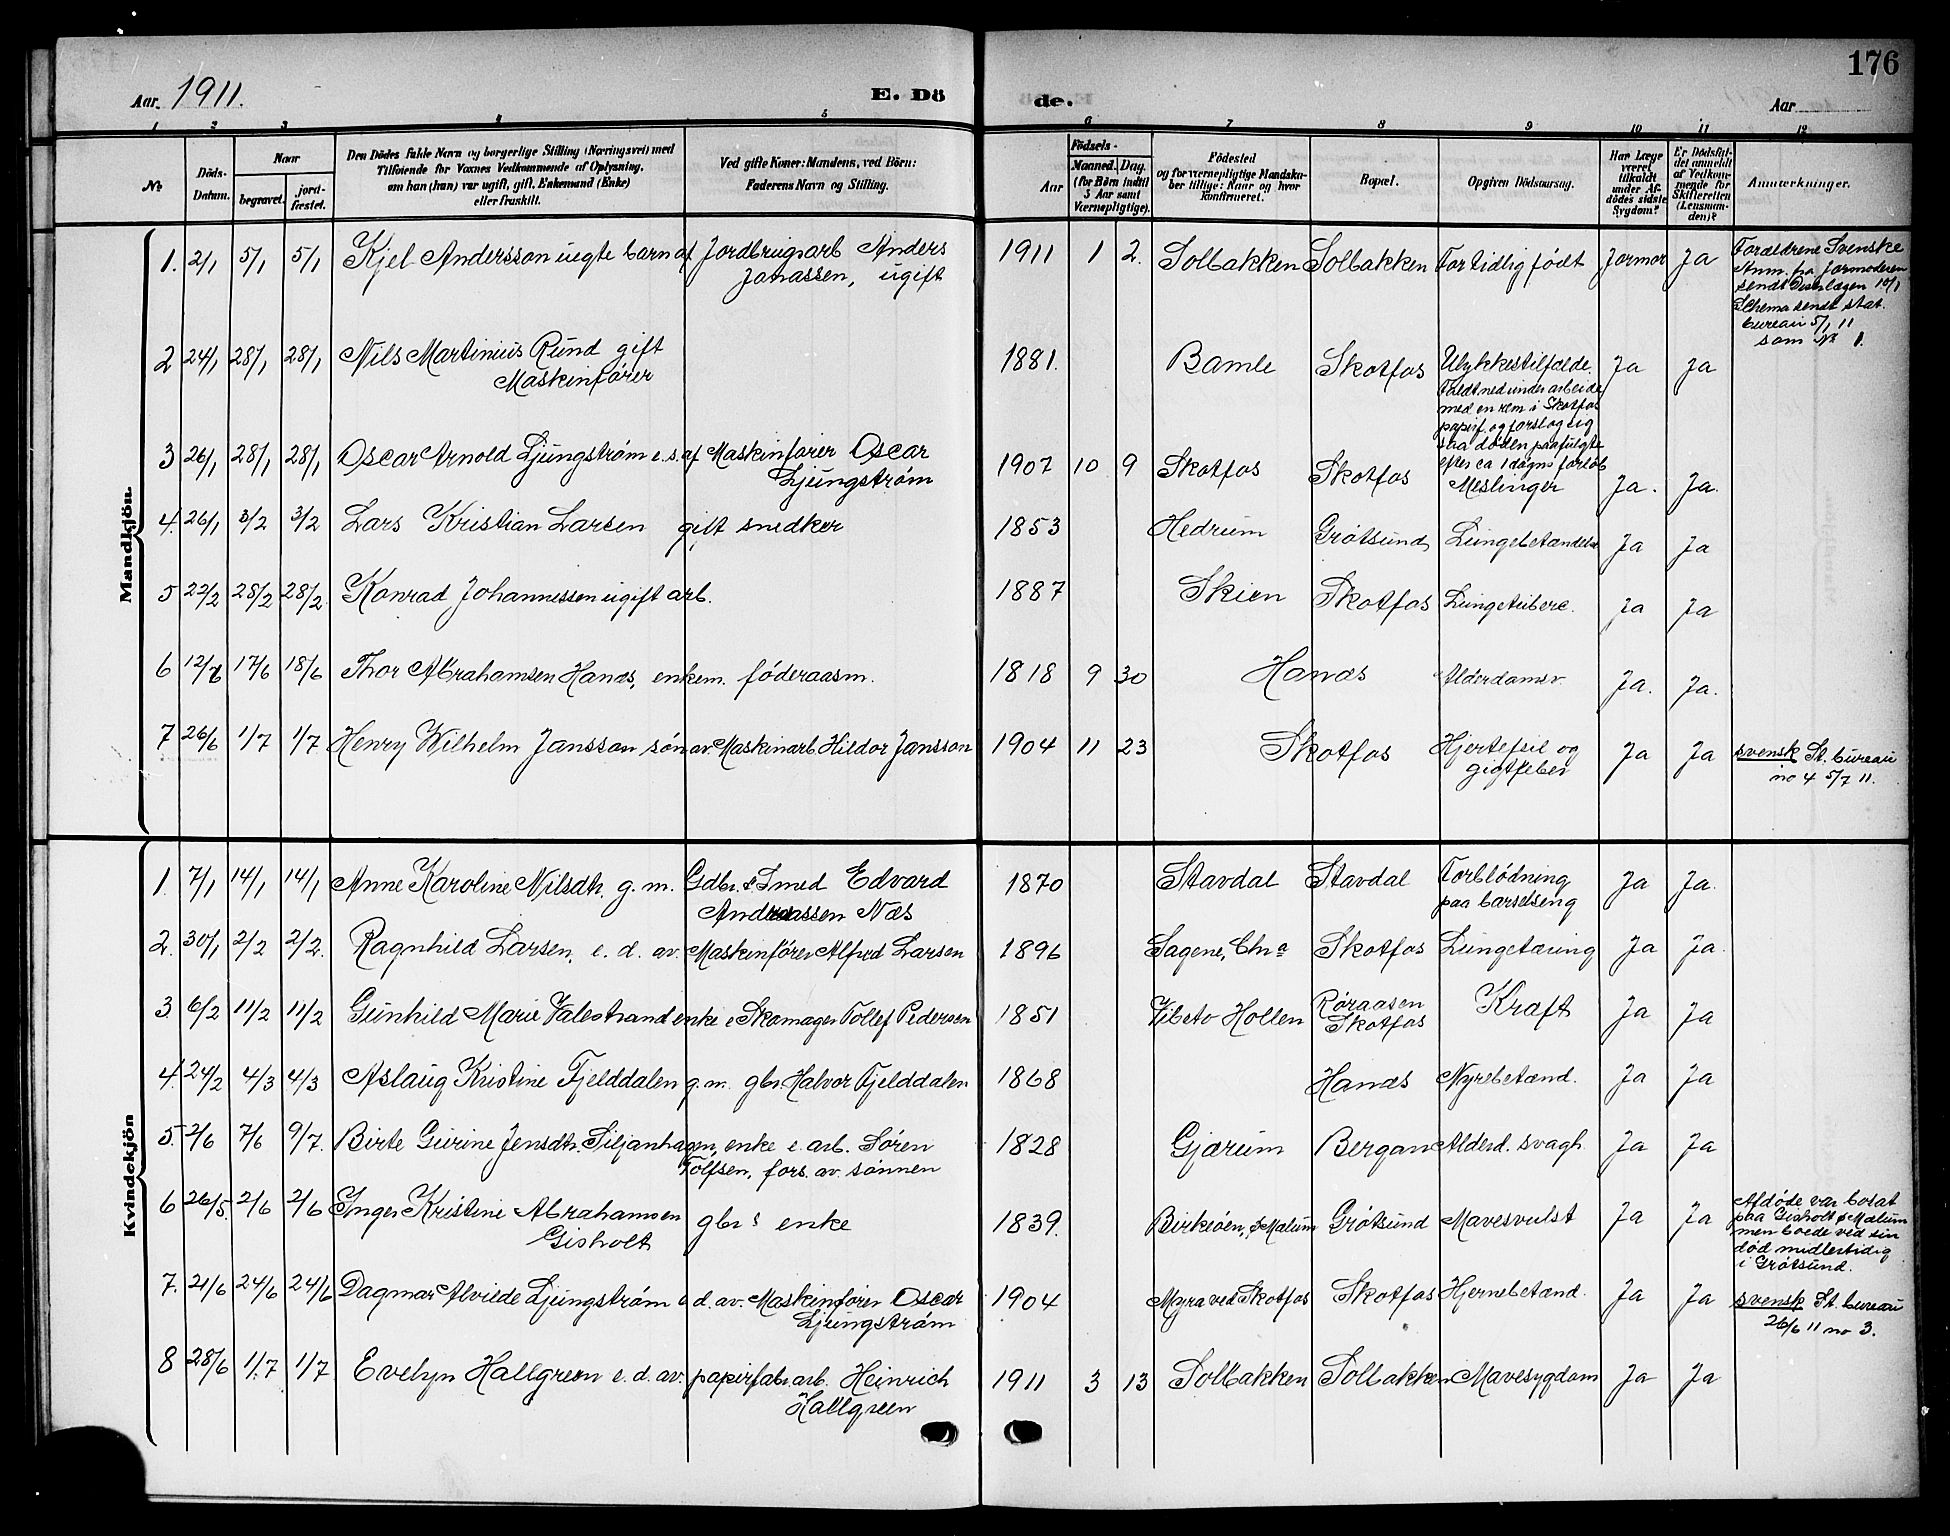 176
Aar. 1911.
E. Dö
de.
Aar
1 2 3 4 5 6 7 8 9 10 11 12
№
Döds-
Datum.
Naar
begravet.
jord-
fæstet.
Den Dödes fulde Navn og borgerlige Stilling (Næringsvei) med
Tilföiende for Voxnes Vedkommende af Oplysning,
om han (hun) var ugift, gift, Enkemand (Enke)
eller fraskilt.
Ved gifte Koner: Mandens, ved Börn:
Faderens Navn og Stilling.
Födsels-
Aar
Maaned. Dag.
(for Börn indtil
5 Aar samt
Værnepligtige).
Födested
og for værnepligtige Mandska-
ber tillige: Naar og hvor
konfirmeret.
Bopæl.
Opgiven Dödsaarsag.
Har Læge
været
tilkaldt
under Af-
dödes sidste
Sygdom?
Er Dödsfal-
det anmeldt
af Vedkom-
mende for
Skifteretten
(Lensman-
den)?
Anmerkninger.
Mandkjön.
1. 2/1 5/1 5/1 Kjel Andersson uegte barn af Jordbrugsarb Anders 1911 1 2. Solbakken Solbakken For tidlig født Jormor Ja Forældrene Svenske
Jonassen, ugift
Anm. fra Jormoderen
sendt Distrlægen 10/1
Schema sendt stat.
bureau 5/1 11
som № 1.
2 24/1 28/1 28/1 Nils Martinius Rund gift 1881. Bamle Skotfos Ulykkestilfælde. Ja Ja
Maskinfører
Faldt ned under arbeide
med en rem i Skotfos
papirf. og forslog sig
saa døden paafulgte
efter ca 1 døgns forløb
3 26/1 28/1 28/1 Oscar Arnold Ljungstrøm e.s. af Maskinfører Oscar 1907 10 9 Skotfos Skotfos Meslinger Ja. Ja.
Ljungstrøm
4. 26/1 3/2 3/2 Lars Kristian Larsen gift snedker 1853 Hedrum Grøtsund Lungebetændelse Ja Ja
5 22/2 28/2 28/2 Konrad Johannessen ugift arb. 1887 Skien Skotfos Lungetuberc. Ja Ja
6 12/6 17/6 18/6 Thor Abrahamsen Hanæs, enkem. føderaasm. 1818 9 30 Hanæs Alderdomsv. Ja. Ja.
7 26/6 1/7 1/7 Henry Wilhelm Jansson søn av Maskinarb Hildor Jansson 1904 11 23 Skotfos Hjertefeil og Ja Ja svensk St. bureau
gigtfeber
no 4 5/7 11.
Kvindekjön
1. 7/1 14/1 14/1 Anne Karoline Nilsdtr. g. m. Gdbr. & Smed Edvard 1870 Stavdal Stavdal Forblødning Ja Ja.
Andreassen Næs
paa barselseng
2. 30/1 2/2 2/2. Ragnhild Larsen, e. d. av. Maskinfører Alfred Larsen 1896 Sagene, Chr.a Skotfos Lungetæring Ja Ja.
3. 6/2 11/2 11/2 Gunhild Marie Valestrand enke e Skomager Tollef Pedersen 1851 Vibeto Hollen Røraasen Kræft Ja Ja
Skotfos
4. 24/2 4/3 4/3 Aslaug Kristine Fjelddalen g.m. gbr. Halvor Fjelddalen 1868 Hanæs Nyrebetænd. Ja Ja
5. 2/6 7/6 9/7 Birte Gurine Jensdtr. Siljanhagen, enke e. arb. Søren 1828 Gjærum Bergan Alderd. svagh. Ja Ja
Tolfsen, fors. av sønnen
6 26/5. 2/6 2/6 Inger Kristine Abrahamsen gbrs enke 1839. Birkeøen, Ø Mælum Grøtsund Mavesvulst Ja Ja Afdøde var bosat
Gisholt
paa Gisholt Ø Mælum
men boede ved sin
død midlertidig
i Grøtsund.
7. 21/6 24/6 24/6 Dagmar Alvilde Ljungstrøm e d. av. Maskinfører Oscar 1904 Myra ved Skotfos Skotfos Hjernebetænd. Ja Ja svensk St. bureau
Ljungstrøm
26/6 11 no 3.
8 28/6 1/7 1/7 Evelyn Hallgreen e. d. av. papirfabr.arb. Heinrich 1911 3 13 Solbakken Solbakken Mavesygdom Ja Ja
Hallgreen